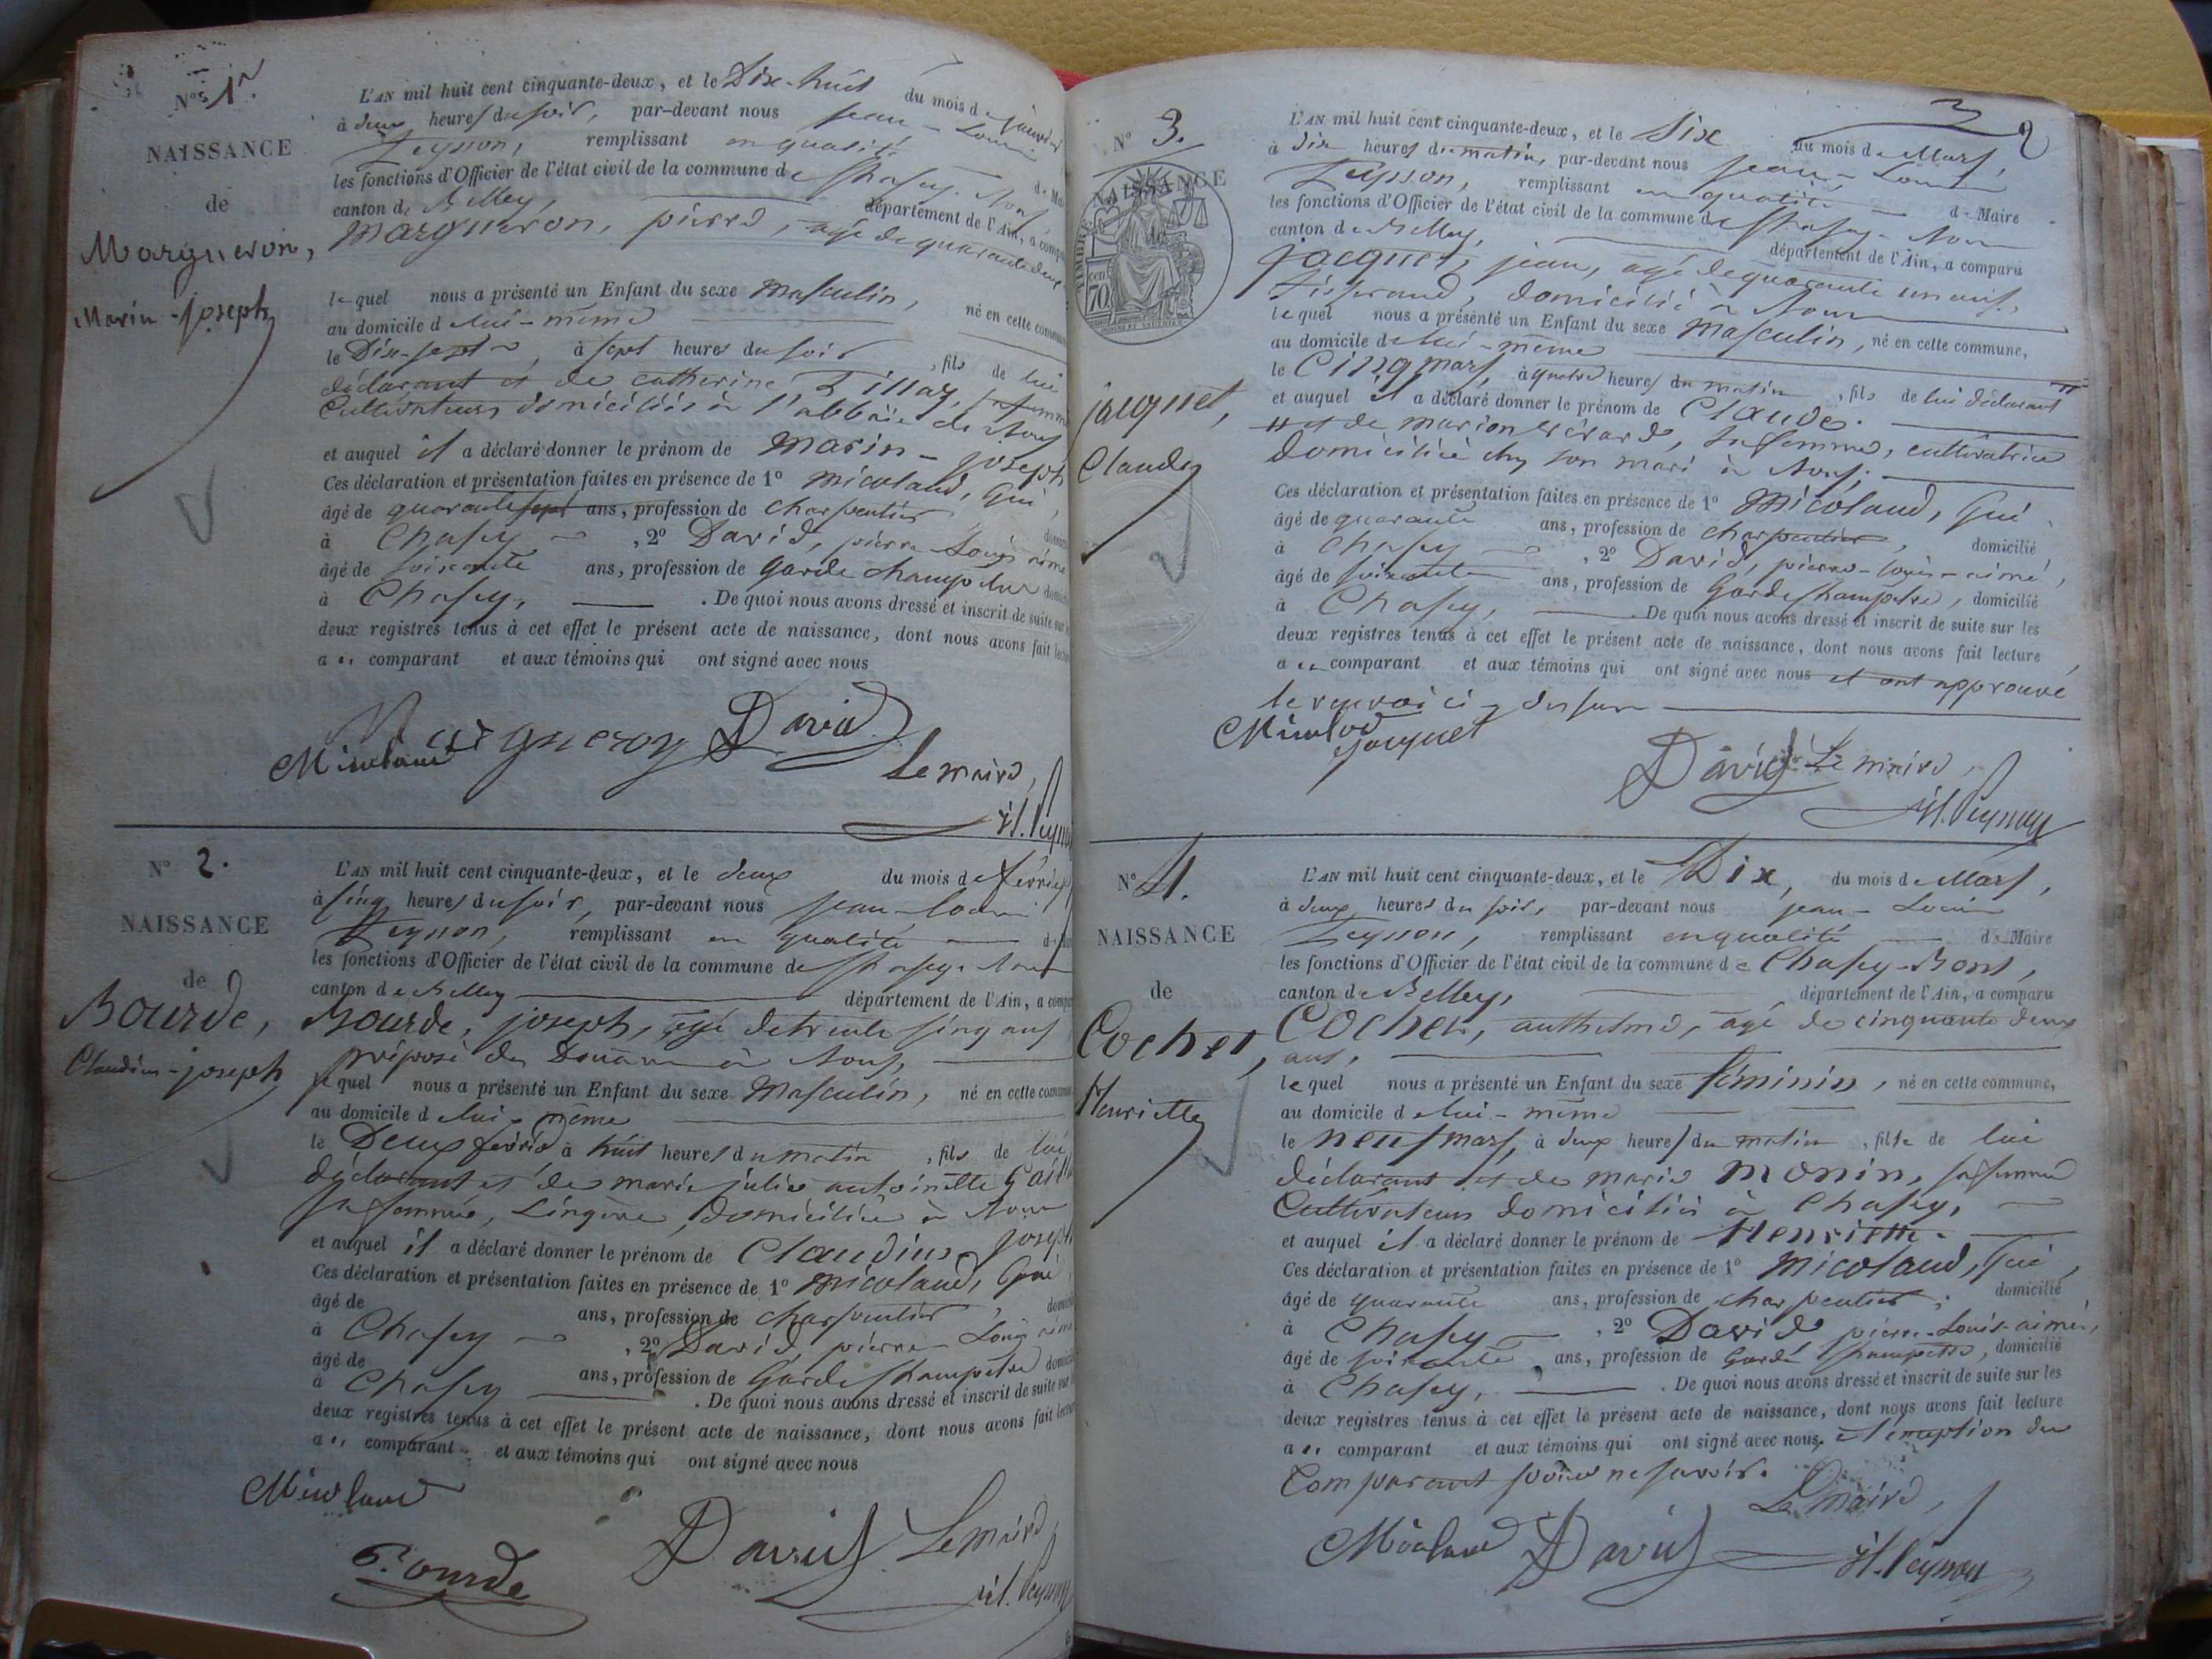 Nos 1er
NAISSANCE
de
Margueron,
Marin-joseph
L'AN mil huit cent cinquante-deux, et le Dix-huit du mois de janvier
à deux heures du soir, par-devant nous jean-Louis
Peysson, remplissant en qualité de Mai
les fonctions d'Officier de l'état civil de la commune de Chasey-Bons
canton de Belley, département de l'Ain, a comparu
Margueron, pierre, agé de quarante deux
lequel nous a présenté un Enfant du sexe Masculin, né en cette commune
au domicile de lui-même
le Dix-sept, à sept heures du soir, fils de lui
déclarant et de catherine Tillay, sa femme
Cultivateurs domiciliés à l'abbaie de Bons
et auquel il a déclaré donner le prénom de Marin-joseph
Ces déclaration et présentation faites en présence de 1º Micoland, Gui,
âgé de quarante sept ans, profession de charpentier
à Chasey, 2º David, pierre-Louis aimé
âgé de soixante ans, profession de Garde champêtre
à Chasey, . De quoi nous avons dressé et inscrit de suite sur les
deux registres tenus à cet effet le présent acte de naissance, dont nous avons fait lecture
au comparant et aux témoins qui ont signé avec nous
Margueron David
Micoland
Le maire,
Nº 2.
NAISSANCE
de
Bourde,
Claudius-joseph
L'AN mil huit cent cinquante-deux, et le deux du mois de février
à sinq heures du soir, par-devant nous jean-louis
Peysson, remplissant en qualité
les fonctions d'Officier de l'état civil de la commune de Chasey-Bons
canton de Belley département de l'Ain, a comparu
Bourde, joseph, agé de trente sinq ans
préposé des Douanes à Bons,
lequel nous a présenté un Enfant du sexe Masculin, né en cette commune
au domicile de lui-même
le Deux février à huit heures du matin, fils de lui
déclarant et de marie julie antoinette
sa femme, Lingère, domiciliée à Bons
et auquel il a déclaré donner le prénom de Claudius joseph
Ces déclaration et présentation faites en présence de 1º Micoland, Gui
âgé de ans, profession de charpentier
à Chasey, 2º David, pierre-Louis aimé
âgé de ans, profession de Garde champêtre
à Chasey . De quoi nous avons dressé et inscrit de suite sur
deux registres tenus à cet effet le présent acte de naissance, dont nous avons fait lecture
au comparant et aux témoins qui ont signé avec nous
Micoland
Bourde
David Le maire
3 2
Nº 3.
NAISSANCE
TIMBRE
70
jacquet,
Claude
L'AN mil huit cent cinquante-deux, et le Six du mois de Mars,
à dix heures du matin, par-devant nous jean-Louis
Peysson, remplissant en qualité de Maire
les fonctions d'Officier de l'état civil de la commune de Chasey-Bons
canton de Belley, département de l'Ain, a comparu
jacquet, jean, agé de quarante un ans,
Tisserand, domicilié à Bons
lequel nous a présenté un Enfant du sexe Masculin, né en cette commune,
au domicile de lui-même
le Cinq mars, à quatre heures du matin, fils de lui déclarant
et auquel il a déclaré donner le prénom de Claude.
et de marion sa femme, cultivatrice
domiciliée chez son mari à Bons,
Ces déclaration et présentation faites en présence de 1º Micoland, Gui
âgé de quarante ans, profession de charpentier, domicilié
à Chasey, 2º David, pierre-louis-aimé,
âgé de soixante ans, profession de Garde champêtre, domicilié
à Chasey, . De quoi nous avons dressé et inscrit de suite sur les
deux registres tenus à cet effet le présent acte de naissance, dont nous avons fait lecture
au comparant et aux témoins qui ont signé avec nous et ont approuvé
le renvoi ci-dessus
Micolod
jacquet
David Le maire,
Nº 4.
NAISSANCE
de
Cochet,
Henriette
L'AN mil huit cent cinquante-deux, et le Dix, du mois de Mars,
à deux heures du soir, par-devant nous jean-Louis
Peysson, remplissant en qualité de Maire
les fonctions d'Officier de l'état civil de la commune de Chasey-Bons,
canton de Belley, département de l'Ain, a comparu
Cochet, anthelme, agé de cinquante deux
ans,
lequel nous a présenté un Enfant du sexe féminin, né en cette commune,
au domicile de lui-même
le neuf mars, à deux heures du matin, fille de lui
déclarant et de marie Monin, sa femme
Cultivateurs domiciliés à Chasey,
et auquel il a déclaré donner le prénom de Henriette.
Ces déclaration et présentation faites en présence de 1º Micoland, Gui,
âgé de quarante ans, profession de charpentier, domicilié
à Chasey, 2º David pierre-Louis-aimé,
âgé de soixante, ans, profession de Garde champêtre, domicilié
à Chasey, . De quoi nous avons dressé et inscrit de suite sur les
deux registres tenus à cet effet le présent acte de naissance, dont nous avons fait lecture
au comparant et aux témoins qui ont signé avec nous, à l'exception du
Comparant pour ne savoir.
Le maire,
Micoland David